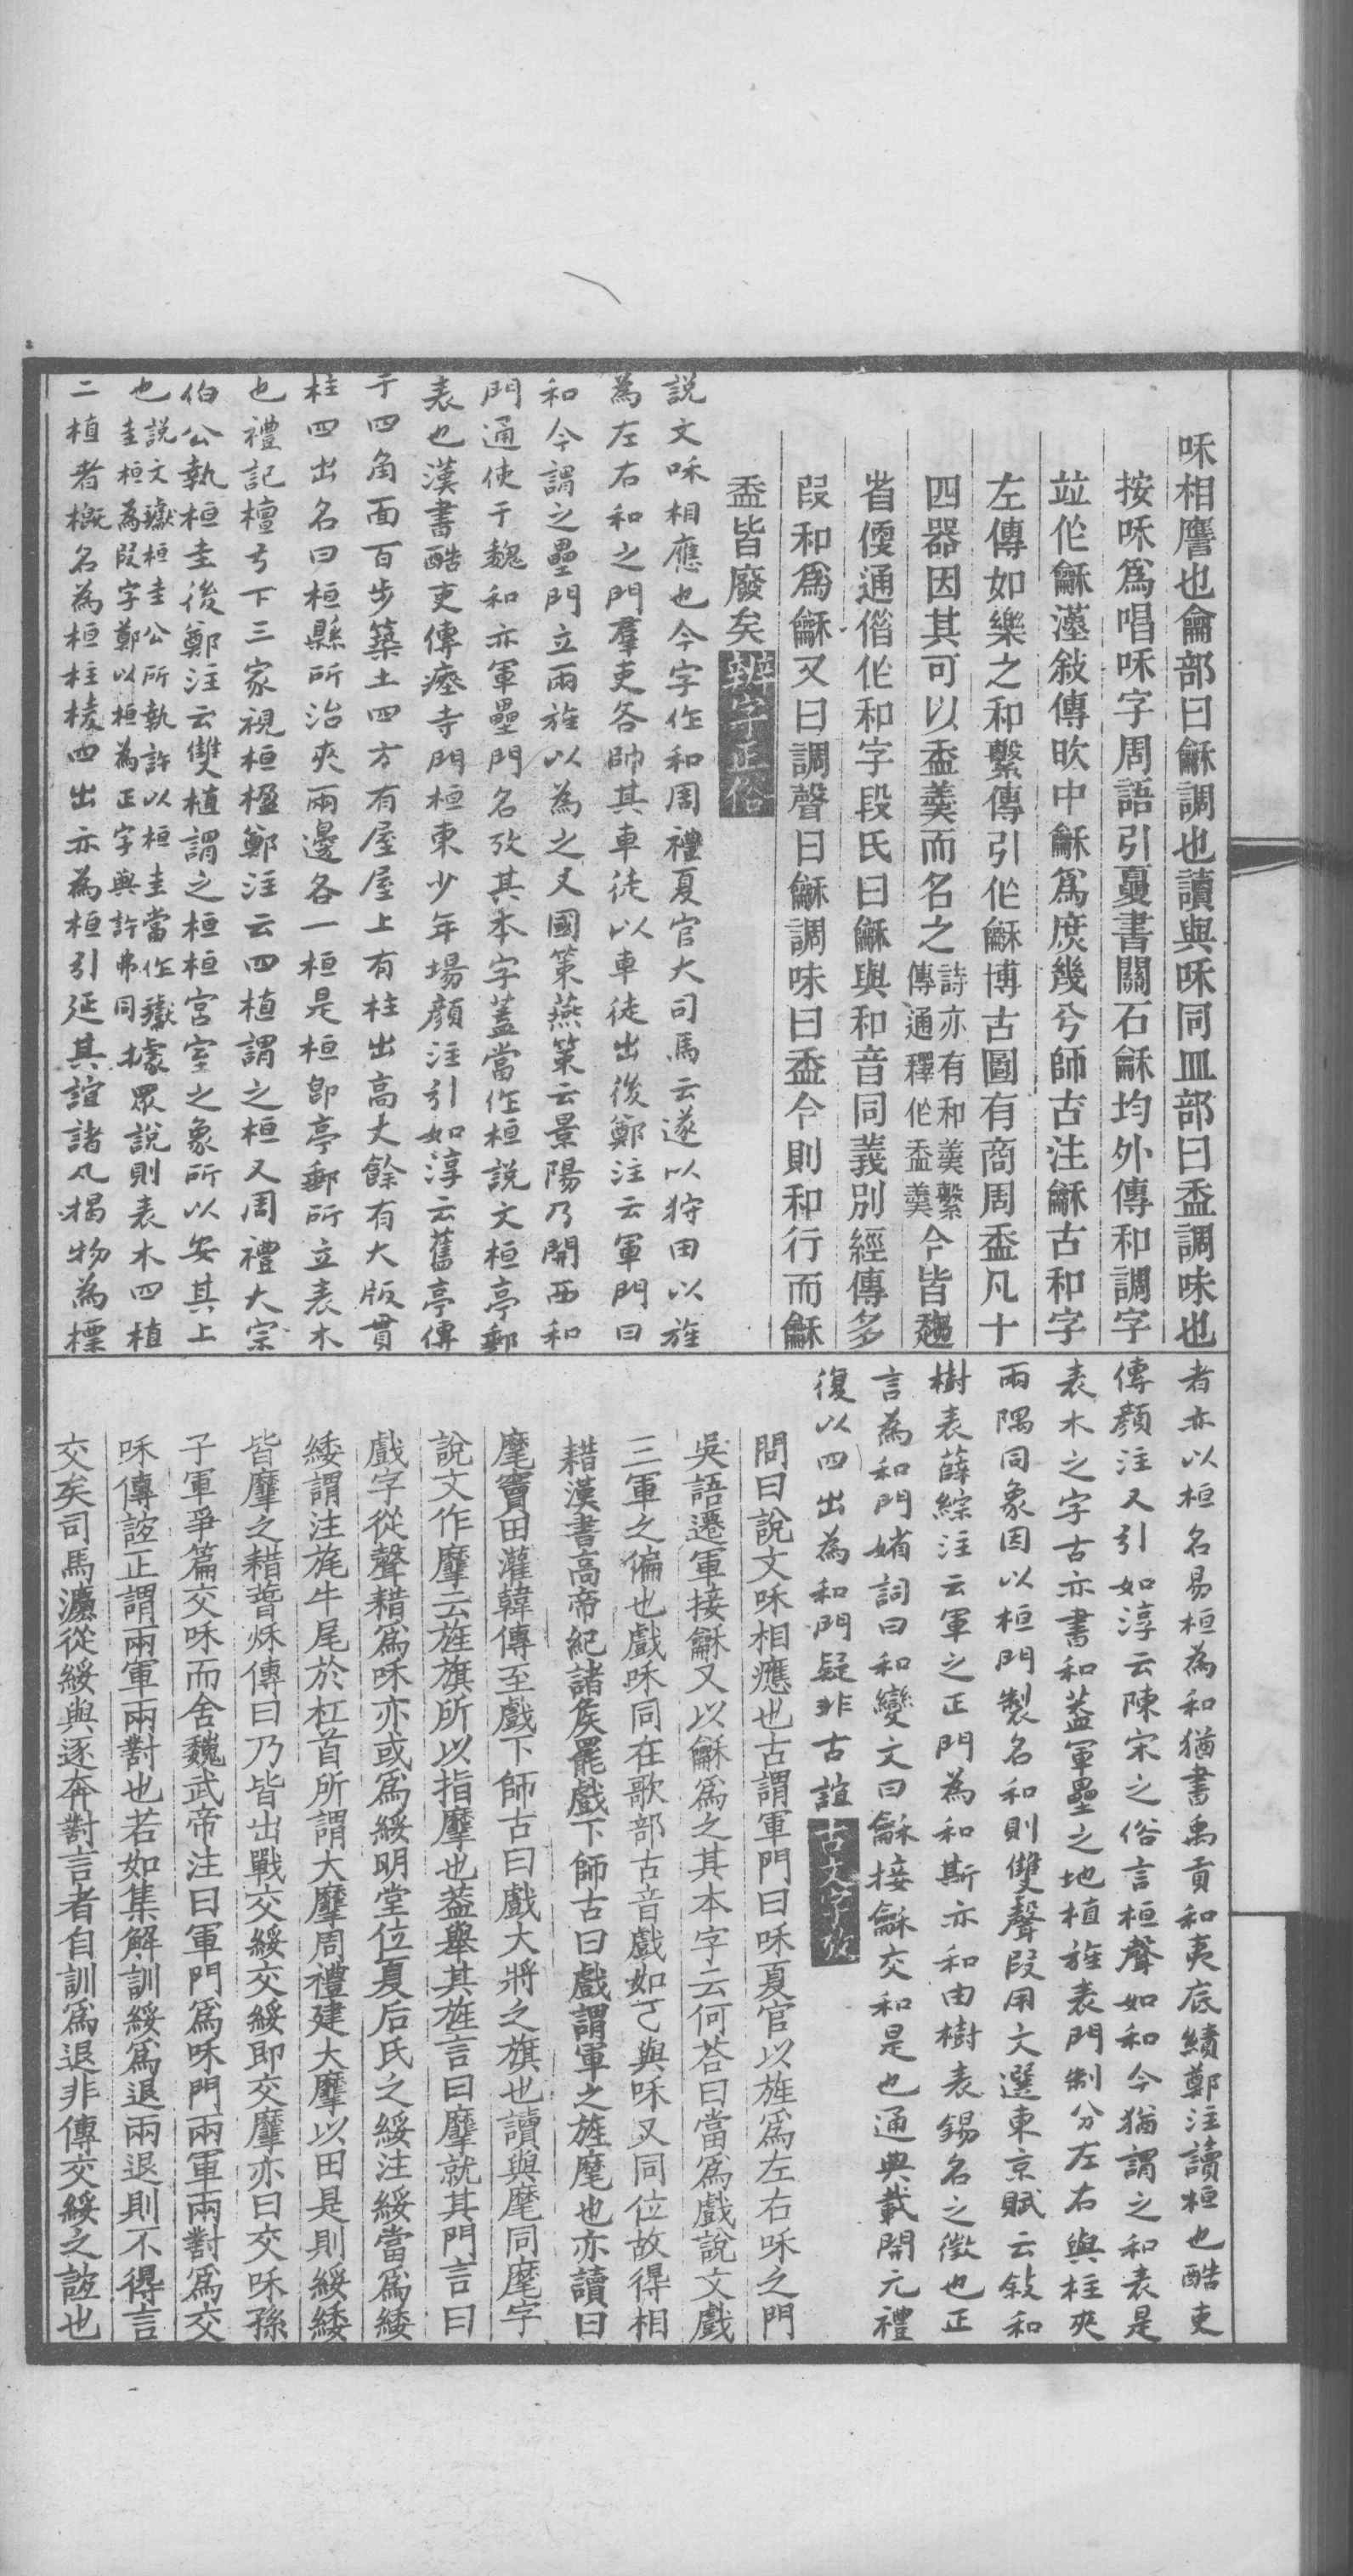 咊相譍也龠部曰龢調也讀與咊同皿部曰盉調味也
按咊爲唱咊字周語引夏書關石龢均外傳和調字
竝作龢漢敍傳昒中龢爲庶幾兮師古注龢古和字
左傳如樂之和繫傳引作龢博古圖有商周盉凡十
四器因其可以盉羹而名之詩亦有和羹繫傳通釋作盉羹今皆趨
省㑄通偕作和字段氏曰龢與和音同義別經傳多
叚和爲龢又曰調聲曰龢調味曰盉今則和行而龢
盉皆廢矣辨字正俗
説文咊相應也今字作和周禮夏官大司馬云遂以狩田以旌
為左右和之門羣吏各帥其車徒以車徒出後鄭注云軍門曰
和今謂之壘門立兩旌以為之又國策燕策云景陽乃開西和
門通使于魏和亦軍壘門名攷其本字蓋當作桓説文桓亭郵
表也漢書酷吏傳瘞寺門桓東少年場顔注引如淳云舊亭傳
于四角面百步築土四方有屋屋上有柱出高丈餘有大版貫
柱四出名曰桓縣所治夾兩邊各一桓是桓卽亭郵所立表木
也禮記檀弓下三家視桓楹鄭注云四植謂之桓又周禮大宗
伯公執桓圭後鄭注云雙植謂之桓桓宮室之象所以安其上
也説文瓛桓圭公所執許以桓圭當作瓛圭桓為叚字鄭以桓為正字與許弗同據眾說則表木四植
二植者概名為桓柱棱四出亦為桓引延其誼諸凡楬物為標
者亦以桓名易桓為和猶書禹貢和夷底績鄭注讀桓也酷吏
傳顔注又引如淳云陳宋之俗言桓聲如和今猶謂之和表是
表木之字古亦書和蓋軍壘之地植旌表門制分左右與柱夾
兩隅同象因以桓門製名和則雙聲叚用文選東京賦云敍和
樹表薛綜注云軍之正門為和斯亦和由樹表錫名之徵也正
言為和門媘詞曰和變文曰龢接龢交和是也通典載開元禮
復以四出為和門疑非古誼古文字攷
問曰說文咊相應也古謂軍門曰咊夏官以旌爲左右咊之門
吳語遷軍接龢又以龢爲之其本字云何荅曰當爲戲說文戲
三軍之偏也戲咊同在歌部古音戲如𠀀與咊又同位故得相
耤漢書高帝紀諸侯罷戲下師古曰戲謂軍之旌麾也亦讀曰
麾竇田灌韓傳至戲下師古曰戲大將之旗也讀與麾同麾字
說文作摩云旌旗所以指摩也蓋舉其旌言曰摩就其門言曰
戲字從聲耤爲咊亦或爲綏明堂位夏后氏之綏注綏當爲緌
緌謂注旄牛尾於杠首所謂大摩周禮建大摩以田是則綏緌
皆摩之耤萅秌傳曰乃皆出戰交綏交綏即交摩亦曰交咊孫
子軍爭篇交咊而舍魏武帝注曰軍門爲咊門兩軍兩對爲交
咊傳誼正謂兩軍兩對也若如集解訓綏爲退兩退則不得言
交矣司馬灋從綏與逐奔對言者自訓爲退非傳交綏之誼也